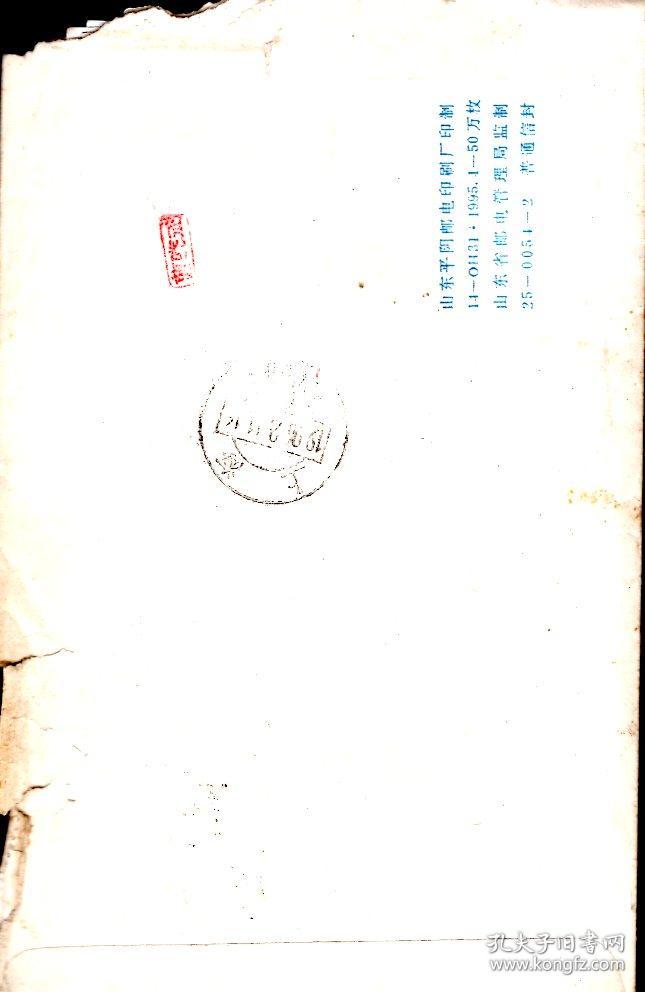 山东平阴邮电印刷厂印制
14-0H31·1995.1-50万枚
山东省邮电管理局监制
25-0054-2 普通信封
上海
孔夫子旧书网
www.kongfz.com